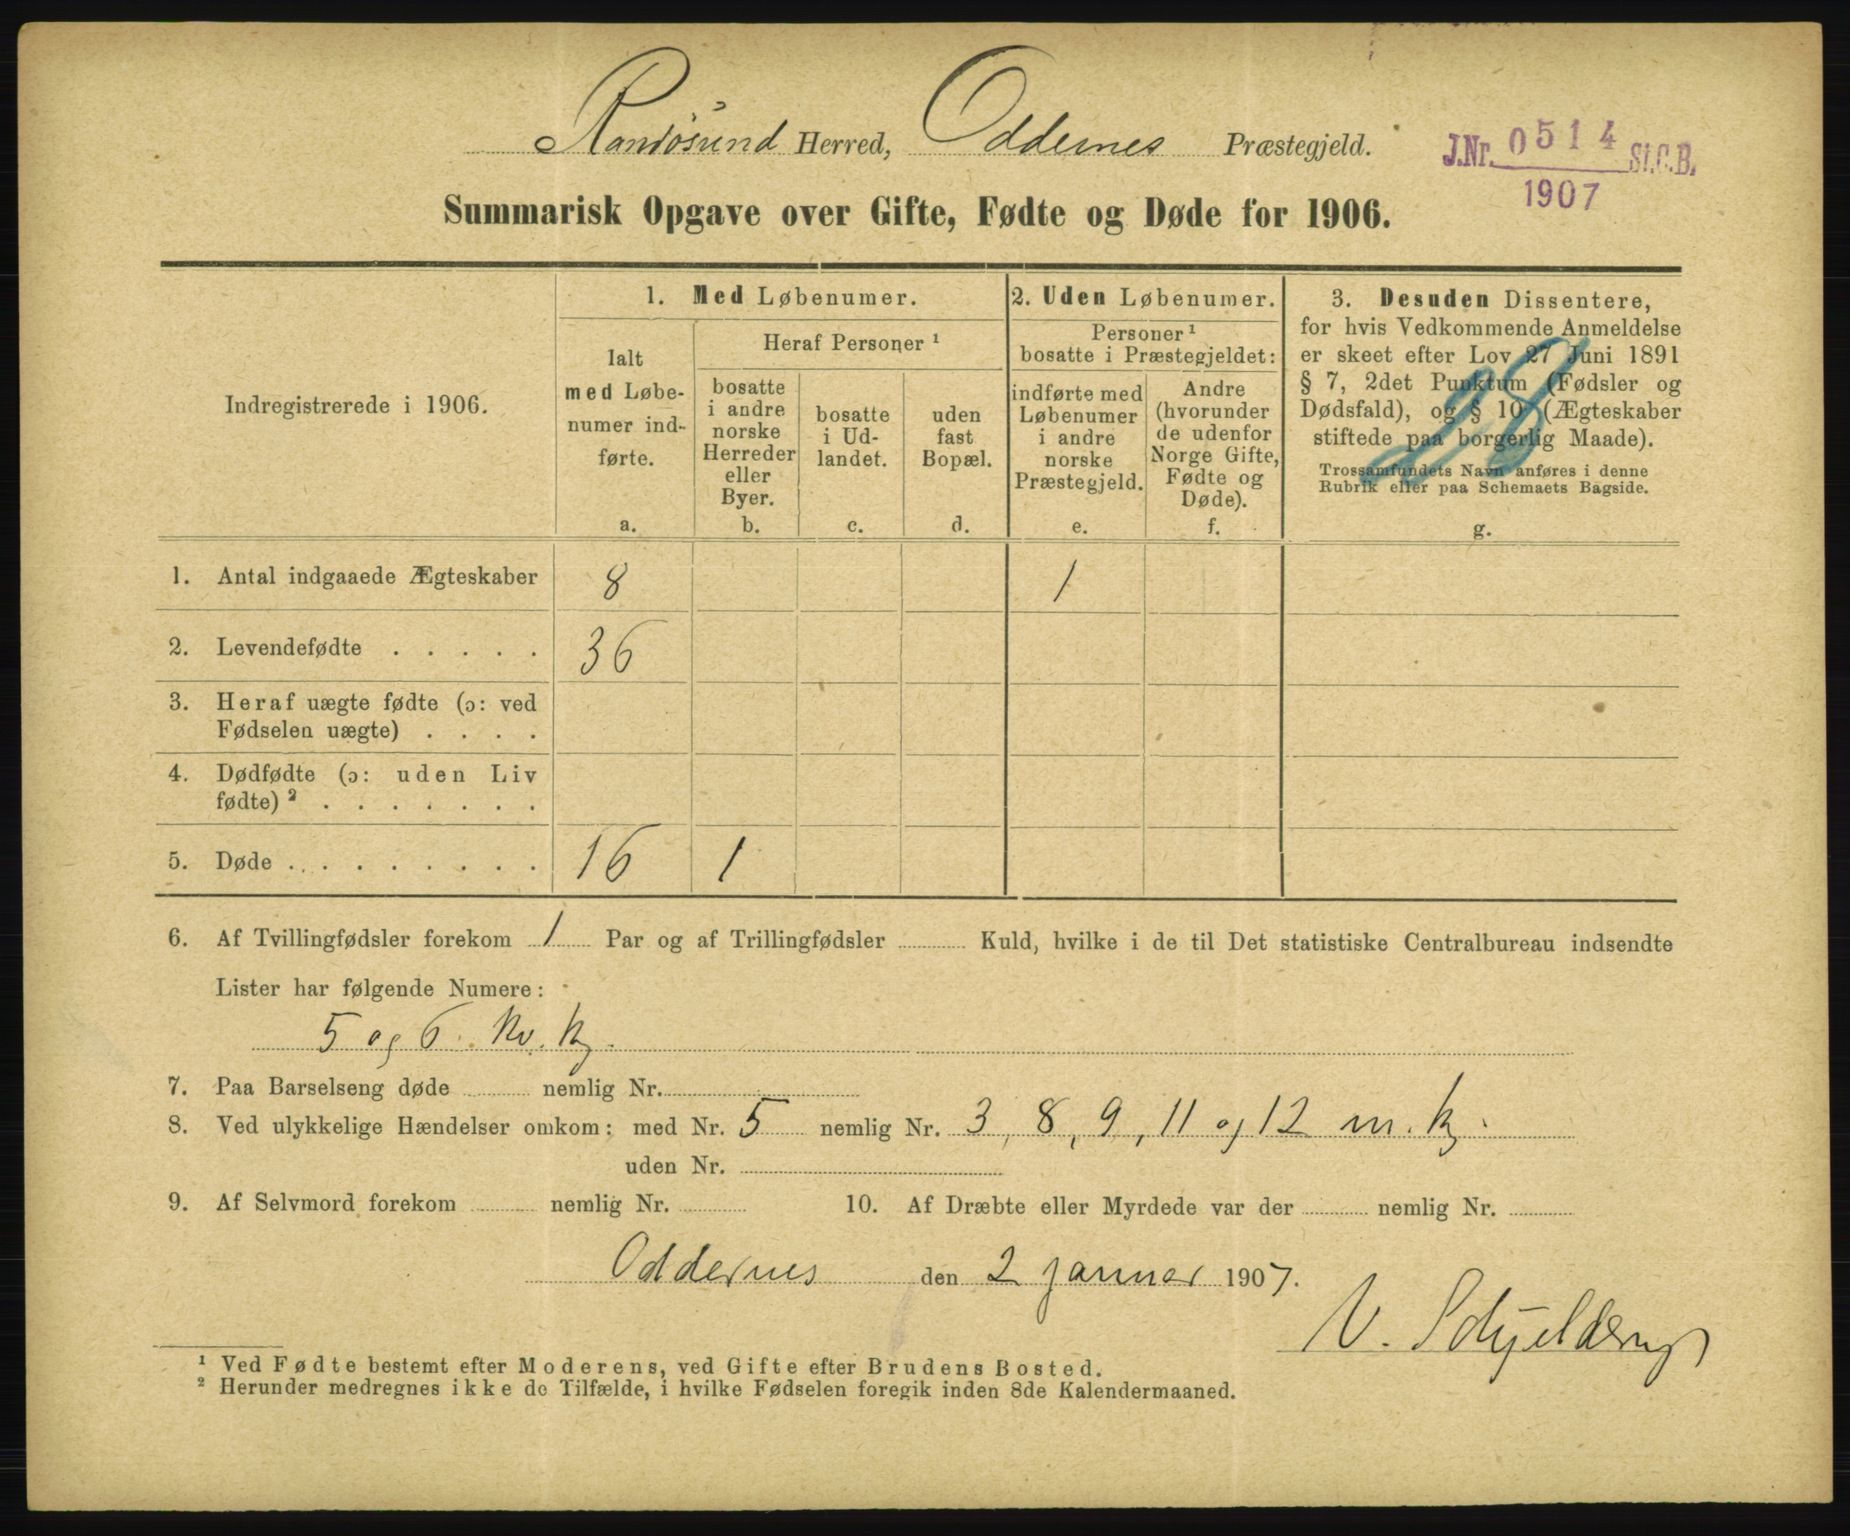 Randøsund Herred, Oddernes Præstegjeld.
J.Nr. 0514 St.C.B.
1907
Summarisk Opgave over Gifte, Fødte og Døde for 1906.
Indregistrerede i 1906.
1. Med Løbenumer.
Ialt
med Løbe-
numer ind-
førte.
a.
Heraf Personer ¹
bosatte
i andre
norske
Herreder
eller
Byer.
b.
bosatte
i Ud-
landet.
c.
uden
fast
Bopæl.
d.
2. Uden Løbenumer.
Personer ¹
bosatte i Præstegjeldet:
indførte med
Løbenumer
i andre
norske
Præstegjeld.
e.
Andre
(hvorunder
de udenfor
Norge Gifte,
Fødte og
Døde).
f.
3. Desuden Dissentere,
for hvis Vedkommende Anmeldelse
er skeet efter Lov 27 Juni 1891
§ 7, 2det Punktum (Fødsler og
Dødsfald), og § 10 (Ægteskaber
stiftede paa borgerlig Maade).
Trossamfundets Navn anføres i denne
Rubrik eller paa Schemaets Bagside.
g.
28
1. Antal indgaaede Ægteskaber 8 1
2. Levendefødte . . . . . 36
3. Heraf uægte fødte (ɔ: ved
Fødselen uægte) . . . .
4. Dødfødte (ɔ: uden Liv
fødte) ² . . . . . . .
5. Døde . . . . . . . . 16 1
6. Af Tvillingfødsler forekom 1 Par og af Trillingfødsler ........ Kuld, hvilke i de til Det statistiske Centralbureau indsendte
Lister har følgende Numere:
5 og 6. Kv. kj.
7. Paa Barselseng døde ........ nemlig Nr.
8. Ved ulykkelige Hændelser omkom: med Nr. 5 nemlig Nr. 3, 8, 9, 11 og 12 m. kj.
uden Nr.
9. Af Selvmord forekom ........ nemlig Nr. ........ 10. Af Dræbte eller Myrdede var der ........ nemlig Nr. ........
Oddernes den 2 januar 1907.
V. Schjelderup
¹ Ved Fødte bestemt efter Moderens, ved Gifte efter Brudens Bosted.
² Herunder medregnes ikke de Tilfælde, i hvilke Fødselen foregik inden 8de Kalendermaaned.